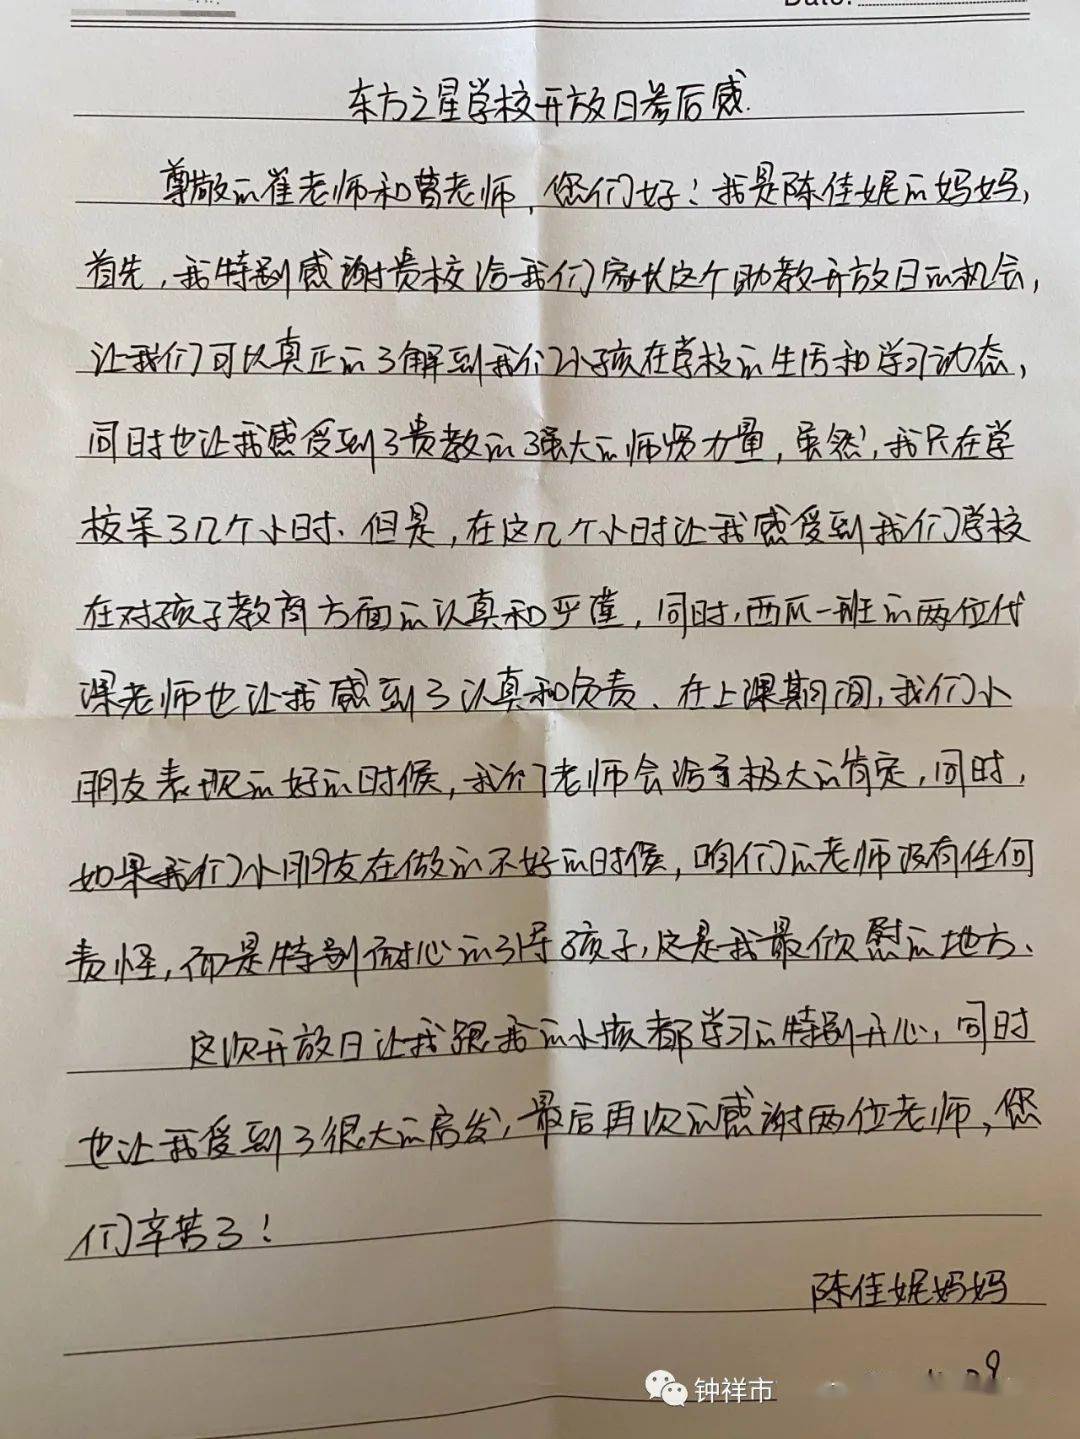 Date:
东方之星学校开放日参后感.
尊敬的崔老师和曹老师,您们好!我是陈佳妮的妈妈,
首先,我特别感谢贵校给我们家长这个助教开放日的机会,
让我们可以真正的了解到我们小孩在学校的生活和学习动态,
同时也让我感受到了贵教的强大的师资力量,虽然,我只在学
校呆了几个小时、但是,在这几个小时让我感受到我们学校
在对孩子教育方面的认真和严谨,同时,西瓜一班的两位代
课老师也让我感到了认真和负责、在上课期间,我们小
朋友表现的好的时候,我们老师会给予极大的肯定,同时,
如果我们小朋友在做的不好的时候,咱们的老师没有任何
责怪,而是特别耐心的引导孩子,这是我最欣慰的地方、
这次开放日让我跟我的小孩都学习的特别开心,同时
也让我受到了很大的启发,最后再次的感谢两位老师,您
们辛苦了!
陈佳妮妈妈
钟祥市